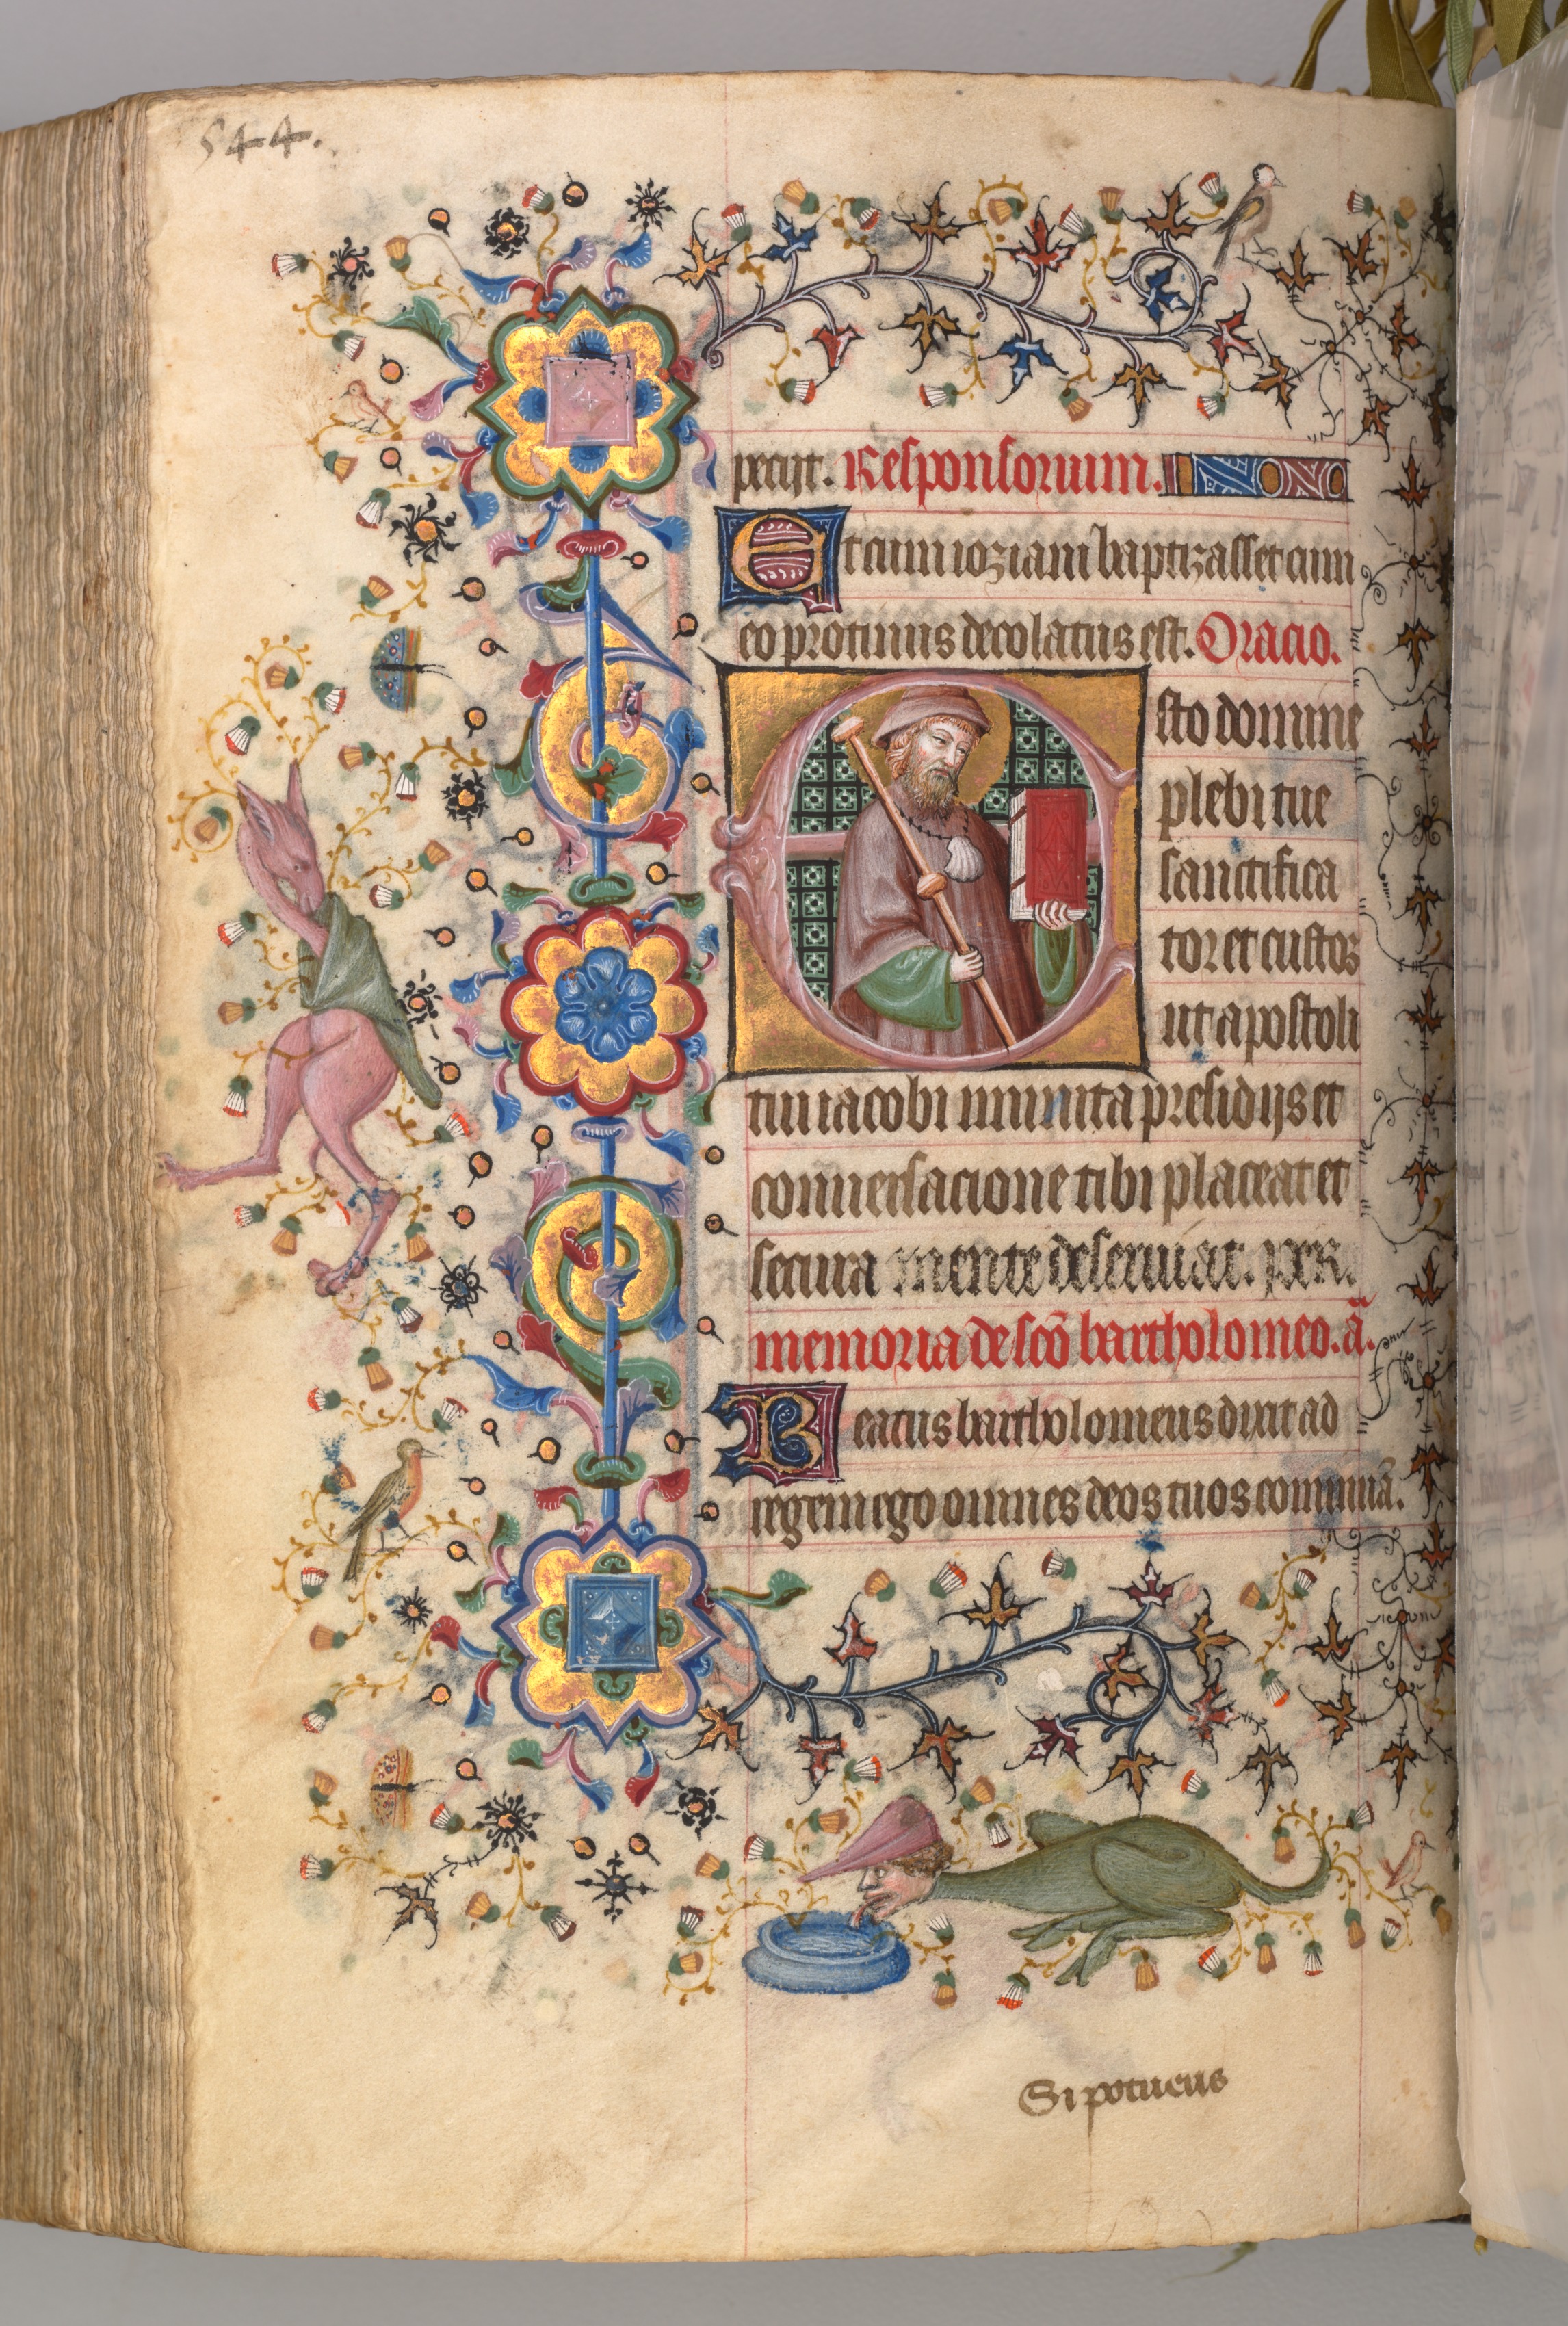 544.
pecijt. Responsorium.
Et cum ioziam baptizasset cum
eo protinus decolatus est. Oracio.
Esto domine
plebi tue
sanctifica
tor et custos
ut apostoli
tui iacobi munita presidijs et
conuersacione tibi placeat et
secura mente deseruiat. per.
memoria de sco̅ bartholomeo. a̅.
Beatus bartholomeus dixit ad
regem ego omnes deos tuos
Si potueris